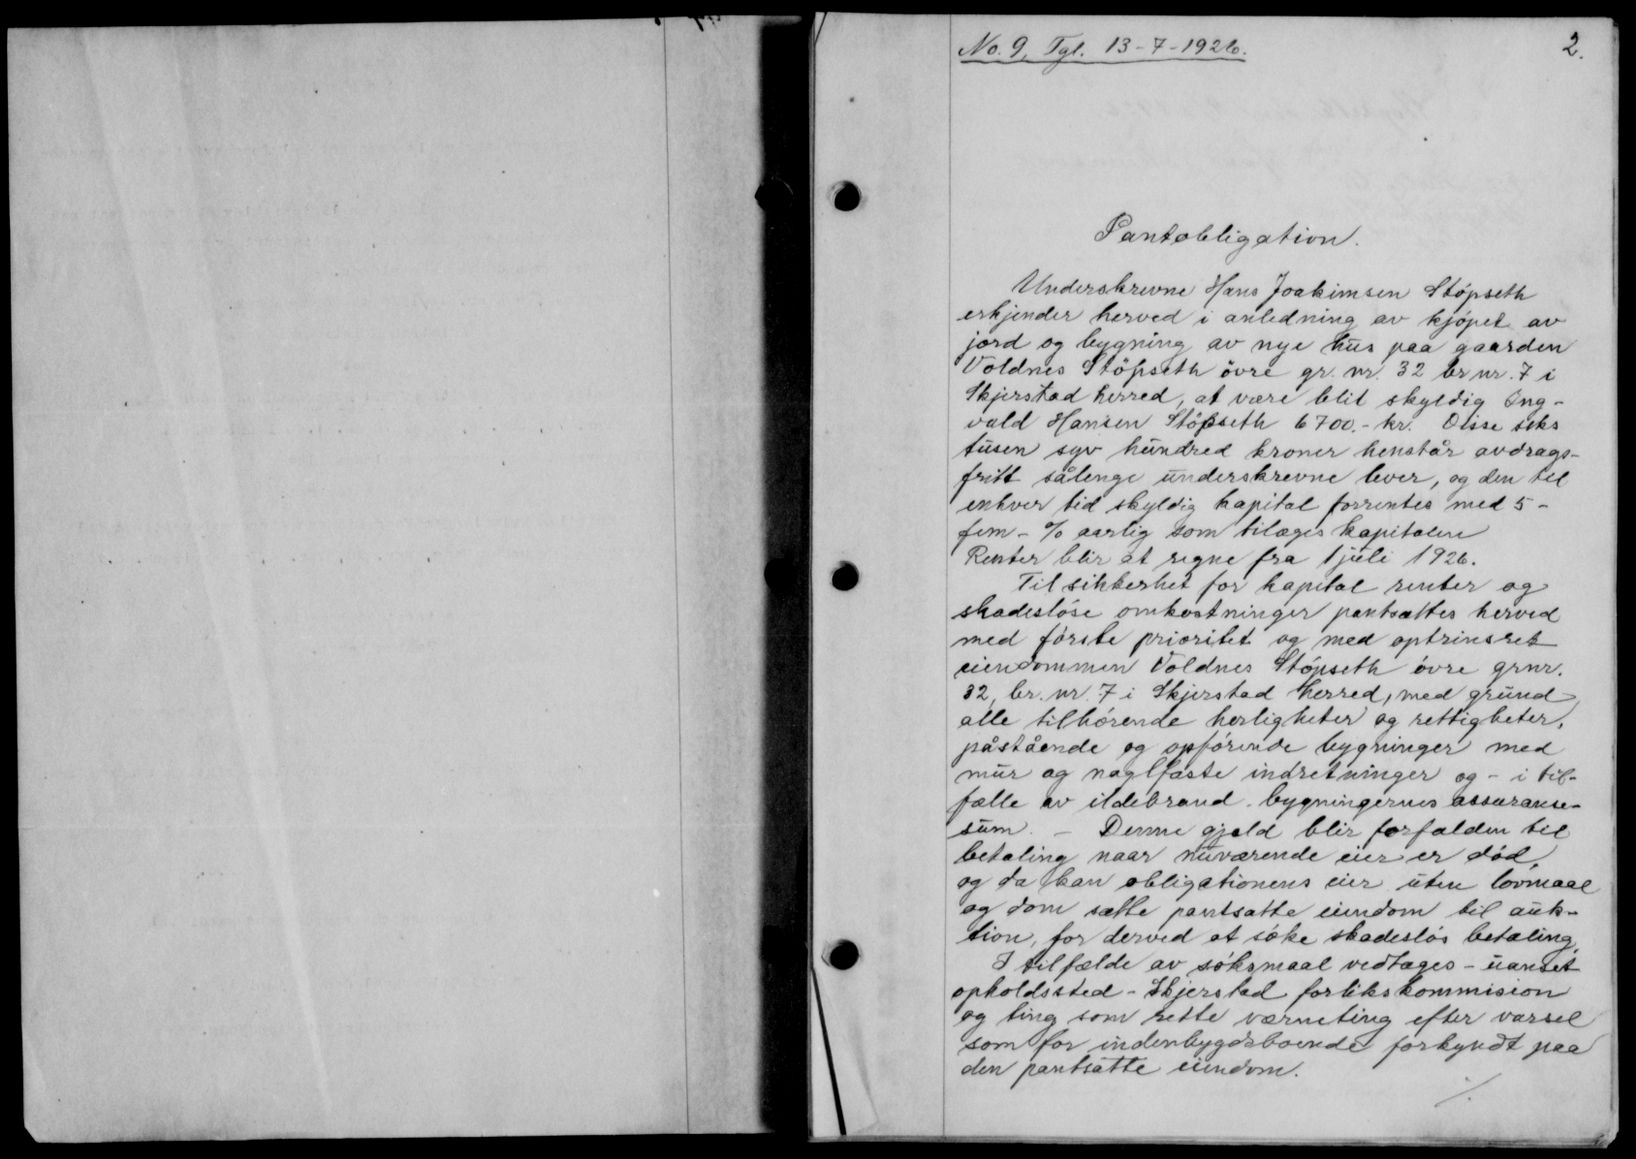 No. 9, Tgl. 13-7-1926.
2.
Pantobligation.
Underskrevne Hans Joakimsen Stöpseth
erkjender herved i anledning av kjöpet av
jord og bygning av nye hus paa gaarden
Voldnes Stöpseth övre gr. nr. 32 br nr. 7 i
Skjerstad herred, at være blit skyldig Ing-
vald Hansen Stöpseth 6700.- kr. Disse seks
tusen syv hundred kroner henstår avdrags-
fritt sålenge underskrevne lever, og den til
enhver tid skyldig kapital forrentes med 5 -
fem - % aarlig som tilæges kapitalen
Renter blir at regne fra 1 juli 1926.
Til sikkerhet for kapital renter og
skadeslöse omkostninger pantsættes herved
med förste prioritet og med optrinsret
eiendommen Voldnes Stöpseth övre grnr.
32, br. nr. 7 i Skjerstad herred, med grund
alle tilhörende herligheter og rettigheter,
påstående og opförende bygninger med
mur og naglfaste indretninger og - i til-
fælle av ildebrand - bygningernes assuranse-
sum. - Denne gjæld blir forfalden til
betaling naar nuværende eier er död,
og da kan obligationens eier uten lovmaal
og dom sætte pantsatte eiendom til auk-
tion, for derved at söke skadeslös betaling.
I tilfælde av söksmaal vedtages - uanset
opholdssted - Skjerstad forlikskommision
og ting som rette værneting efter varsel
som for indenbygdsboende forkyndt paa
den pantsatte eiendom.
./.